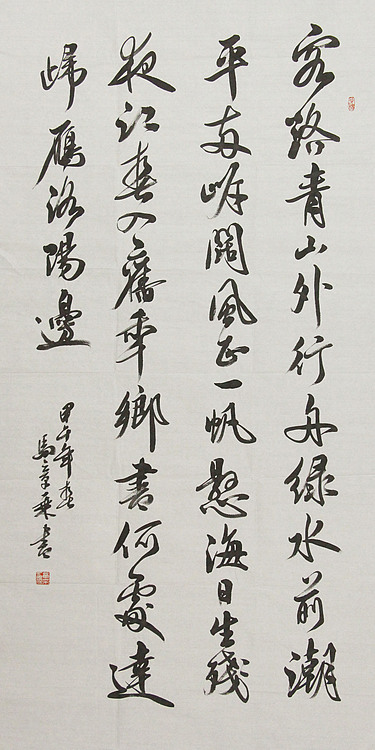 客路青山外行舟緑水前潮
平兩岸闊風正一帆懸海日生殘
夜江春入舊年鄉書何處達
歸雁洛陽邊
甲午年春
馬章乘書